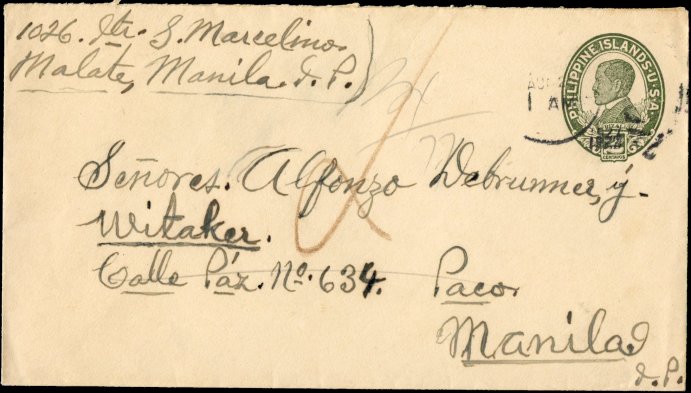 1026. Itr. S. Marcelino.
Malate, Manila. I. P.)
PHILIPPINE ISLANDS·U·S·A
AM
CENTAVOS
Señores. Alfonzo Debrunner, y-
Witaker.
Calle Páz. No. 634. Paco.
Manila
I. P.